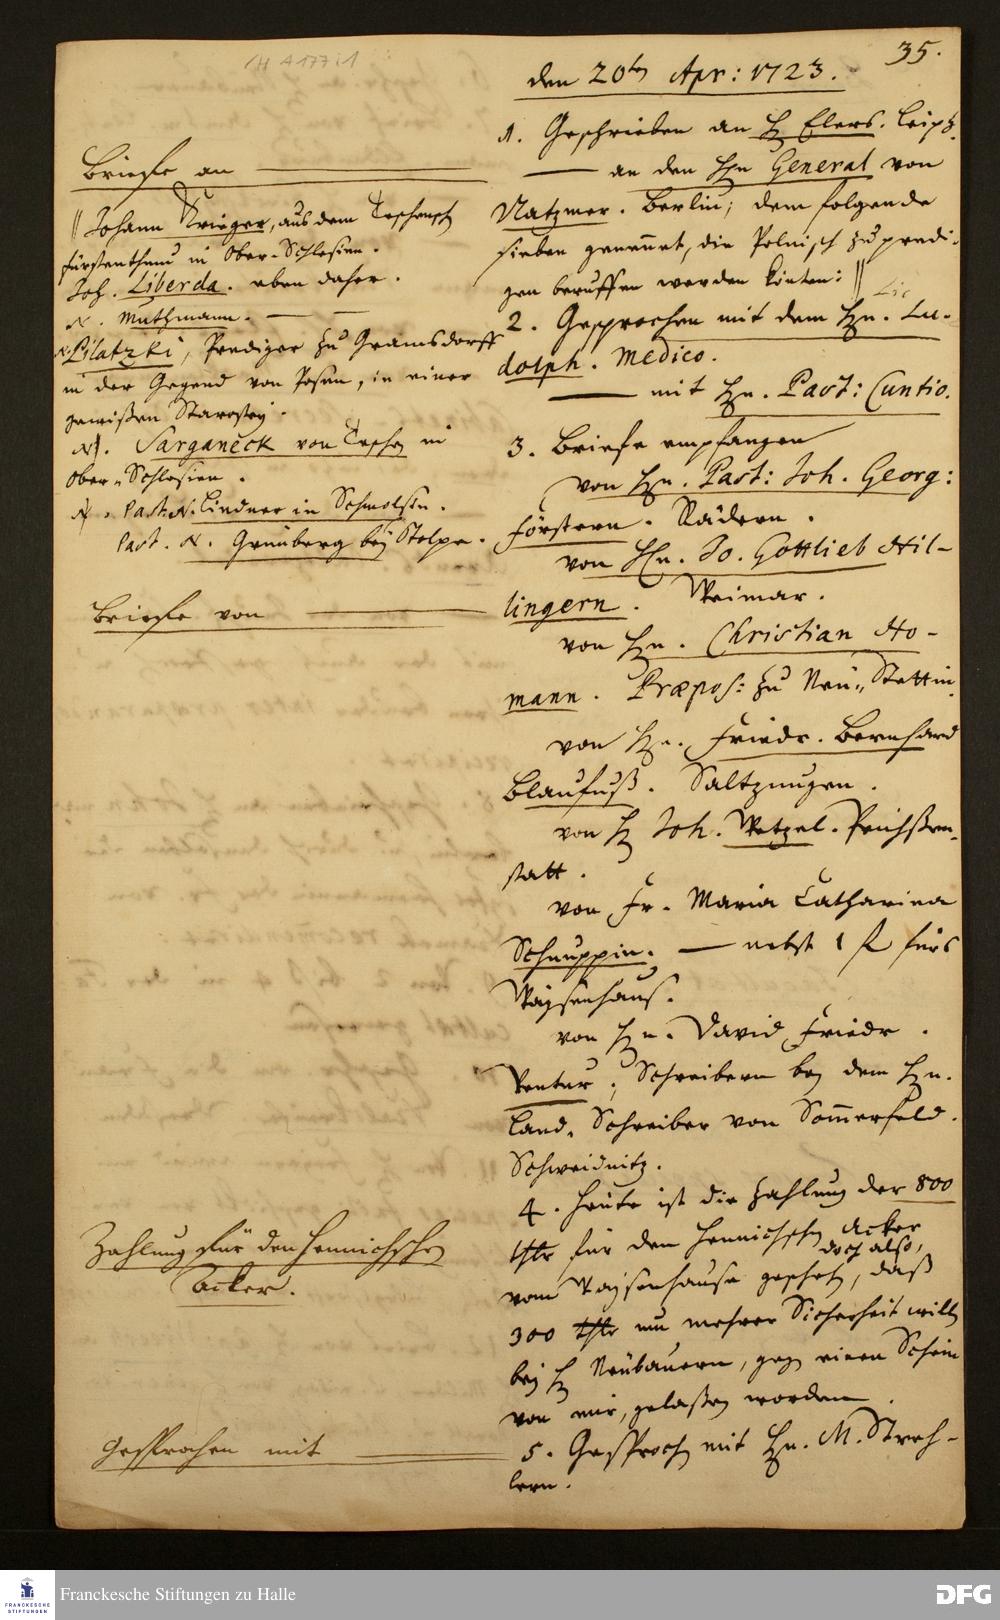 H A 177:1
35.
den 20ten Apr: 1723.
1. Geschrieben an H Elers. Leipz.
—— an den Hn General von
Natzmer. Berlin; dem folgende
sieben genennet, die Polnisch zu predi-
gen beruffen werden könten: ||
2. Gesprochen mit dem Hn. Lic. Lu-
dolph. Medico.
—— mit Hn. Past: Cuntio.
3. Briefe empfangen
von Hn. Past: Joh. Georg:
Förstern. Rädern.
von Hn. Jo. Gottlieb Hil-
lingern. Weimar.
von Hn. Christian Ho-
mann. Præpos: zu Neu-Stettin.
von Hn. Friedr. Bernhard
Blaufuß. Saltzungen.
von H Joh. Wetzel. Prichßen-
statt.
von Fr. Maria Catharina
Schnuppin. — nebst 1 f fürs
Waysenhaus.
von Hn. David Friedr.
Ventur; Schreibern bey dem Hn.
Land-Schreiber von Sommerfeld.
Schweidnitz.
4. Heute ist die Zahlung der 800
thlr für den Hennichschen Acker
vom Waysenhause geschehen, doch also, daß
300 thlr um mehrer Sicherheit willen
bey H Neubauern, gegen einen Schein
von mir, gelaßen worden.
5. Gesprochen mit Hn. M. Streh-
lern.
Briefe an ——
|| Johann Krieger, aus dem Teschensch
fürstenthum in Ober-Schlesien.
Joh. Liberda. eben daher.
N. Muthmann. — —
N. Pilatzki, Prediger zu Gramsdorff
in der Gegend von Posen, in einer
gewißen Starostey.
N. Sarganeck von Teschen in
Ober-Schlesien.
N. Past. N. Lindner in Schmolsin.
Past. N. Grünberg bey Stolpe.
Briefe von ——
Zahlung für den Hennichschen
Acker.
Gesprochen mit ——
FRANCKESCHE
STIFTUNGEN
Franckesche Stiftungen zu Halle
DFG